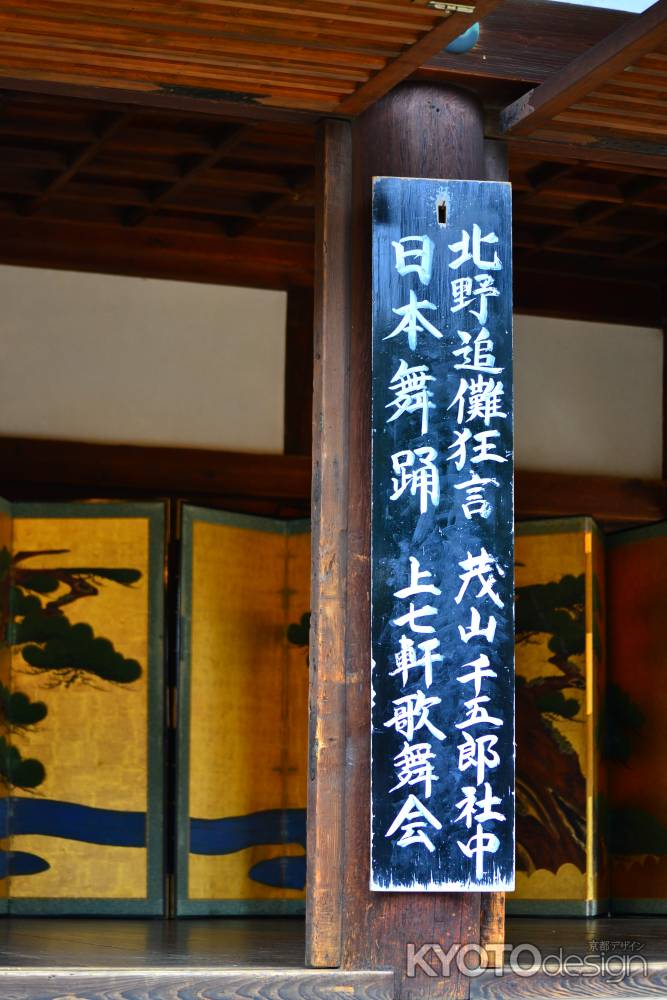 北野追儺狂言 茂山千五郎社中
日本舞踊 上七軒歌舞会
京都デザイン
KYOTOdesign